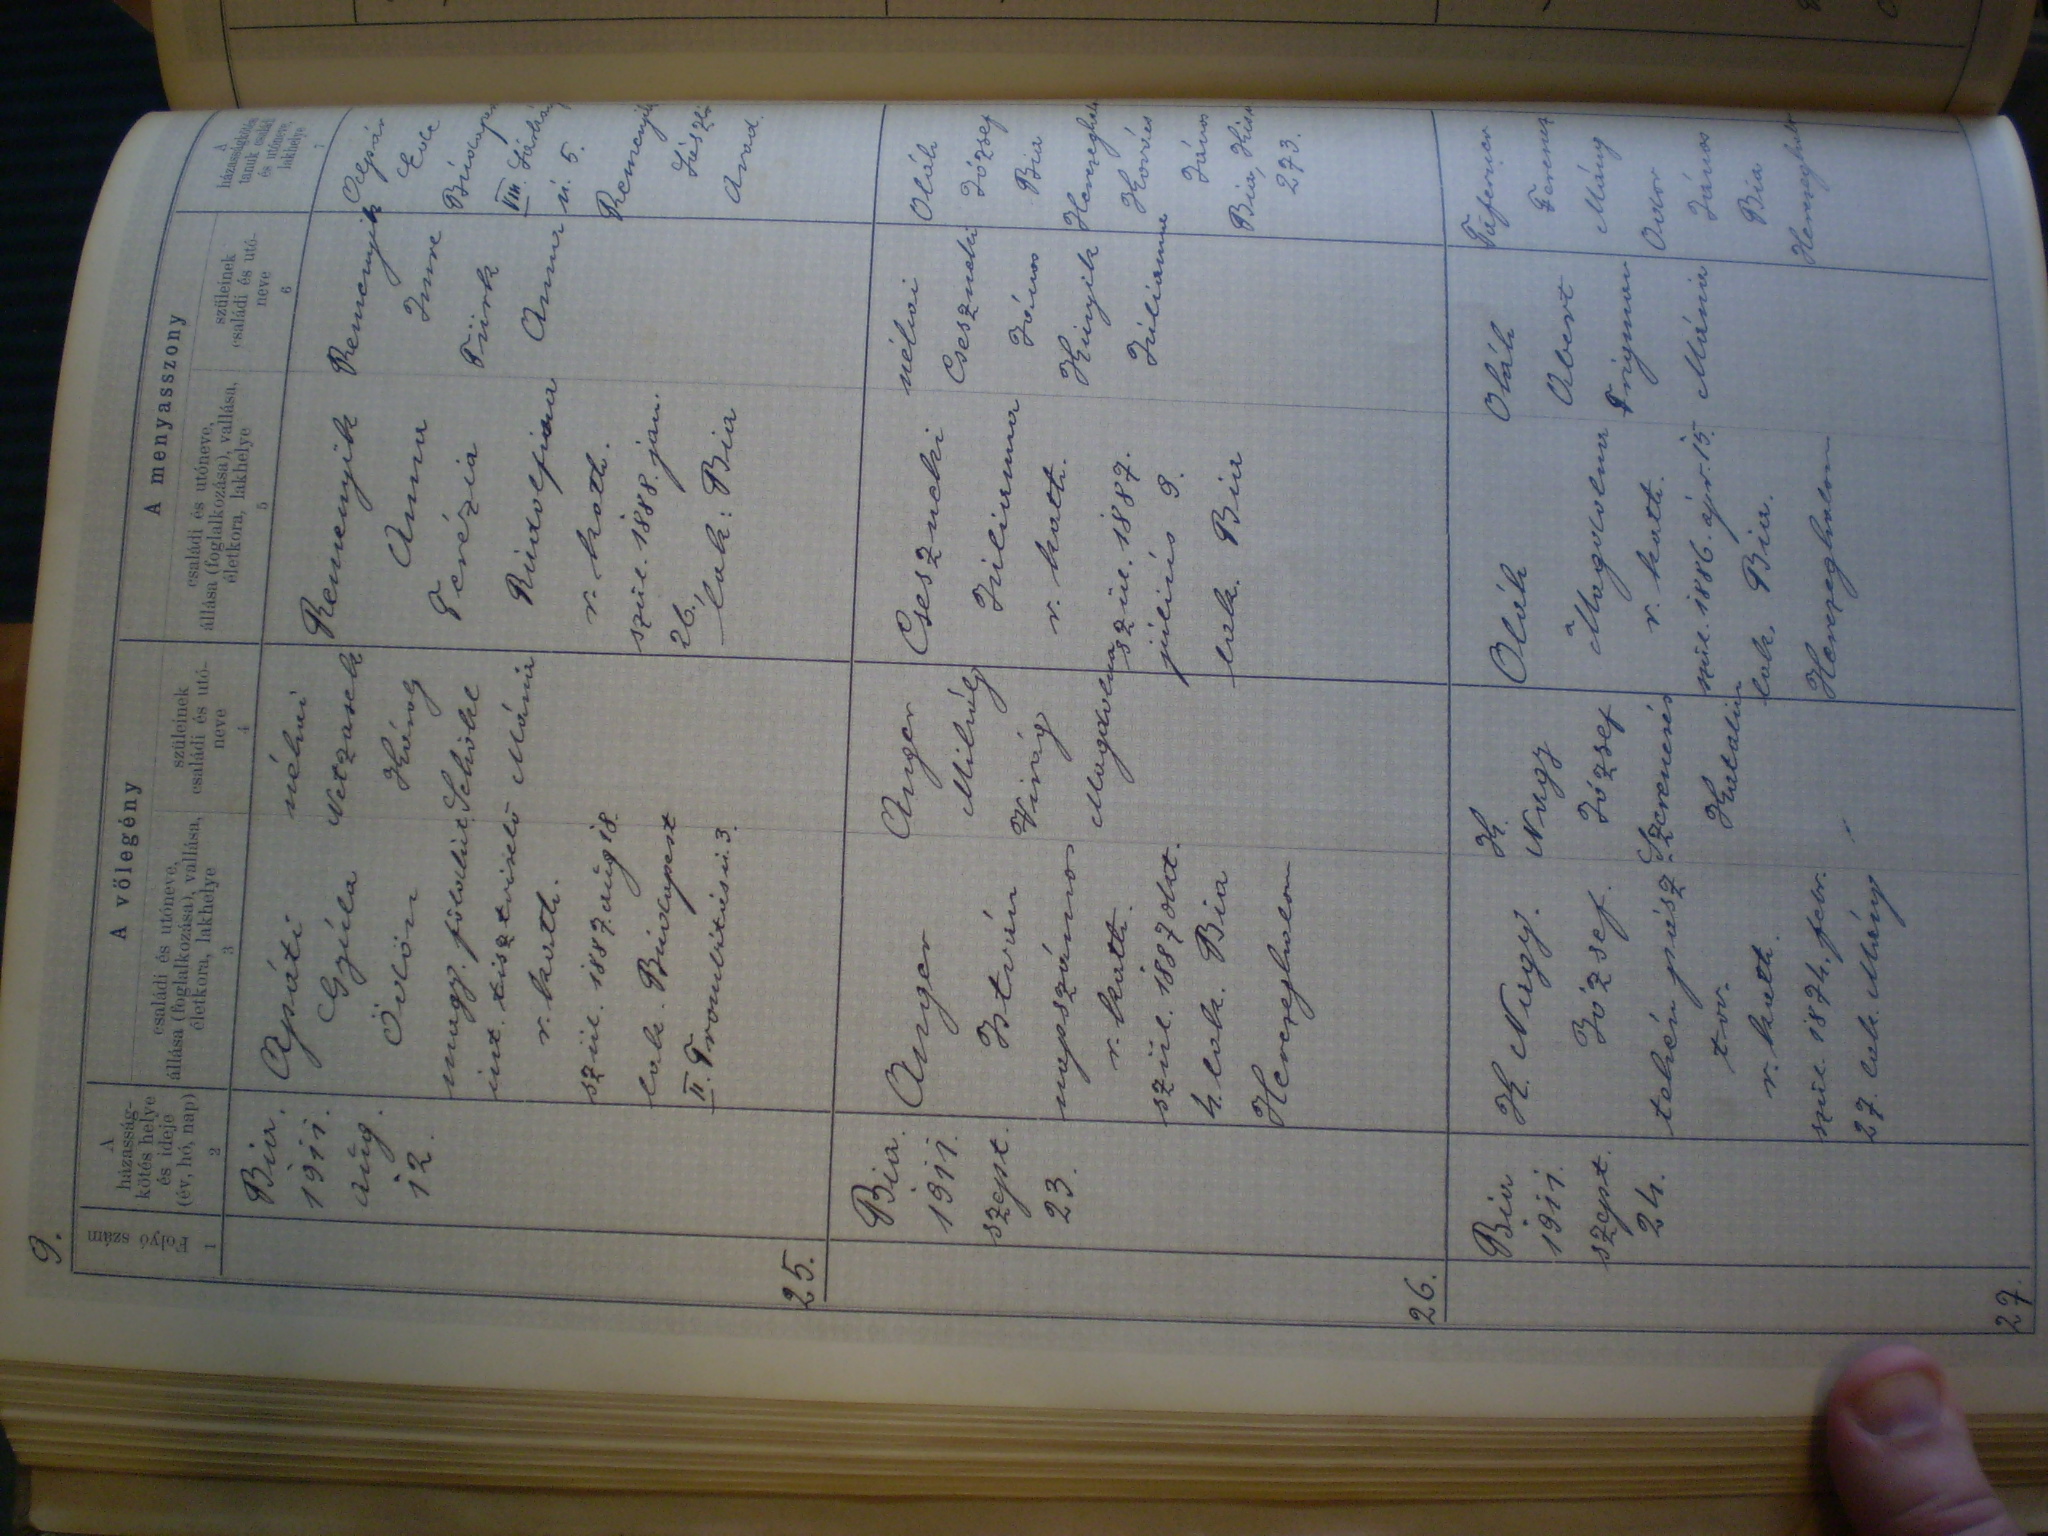 9.
Folyó szám
1
A
házasság-
kötés helye
és ideje
(év, hó, nap)
2
A vőlegény
családi és utóneve,
állása (foglalkozása), vallása,
életkora, lakhelye
3
szüleinek
családi és utó-
neve
4
A menyasszony
családi és utóneve,
állása (foglalkozása), vallása,
életkora, lakhelye
5
szüleinek
családi és utó-
neve
6
A
házasságkötés
tanuk családi
és utóneve,
lakhelye
7
25.
Bia.
1911.
aug.
12.
Apáti
Gyula
Ödön
magy. földhit.
int. tisztviselő
r. kath.
szül. 1887. aug 18.
lak. Budapest
II.
néhai
Netzasek
Károly
Mária
Remenyik
Anna
Terézia
Rudolfina
r. kath.
szül. 1888. jan.
26.
lak: Bia
Remenyik
Imre
Türk
Anna
Alpár
Ede
Budape
VIII.
u. 5.
Remenyik
Arad.
26.
Bia.
1911.
szept.
23.
Anger
István
napszámos
r. kath.
szül. 1887 okt.
4. lak. Bia
Herceghalom
Anger
Mihály
Virág
Magdolna
Cseszneki
Julianna
r. kath.
szül. 1887.
július 9.
lak. Bia
néhai
Cseszneki
János
Kunyik
Julianna
Oláh
József
Bia
Herceghal
Kovács
János
Bia,
273.
27.
Bia
1911.
szept.
24.
K. Nagy.
József.
tehénpász
tor.
r. kath.
szül. 1874. febr.
27. lak. Mány
K.
Nagy
József
Szerencsés
Katalin
Oláh
Magdolna
r. kath.
szül. 1886. ápr. 15.
lak. Bia.
Herceghalom
Oláh
Albert
Mária
Ferenc
Mány
János
Bia
Herceghal